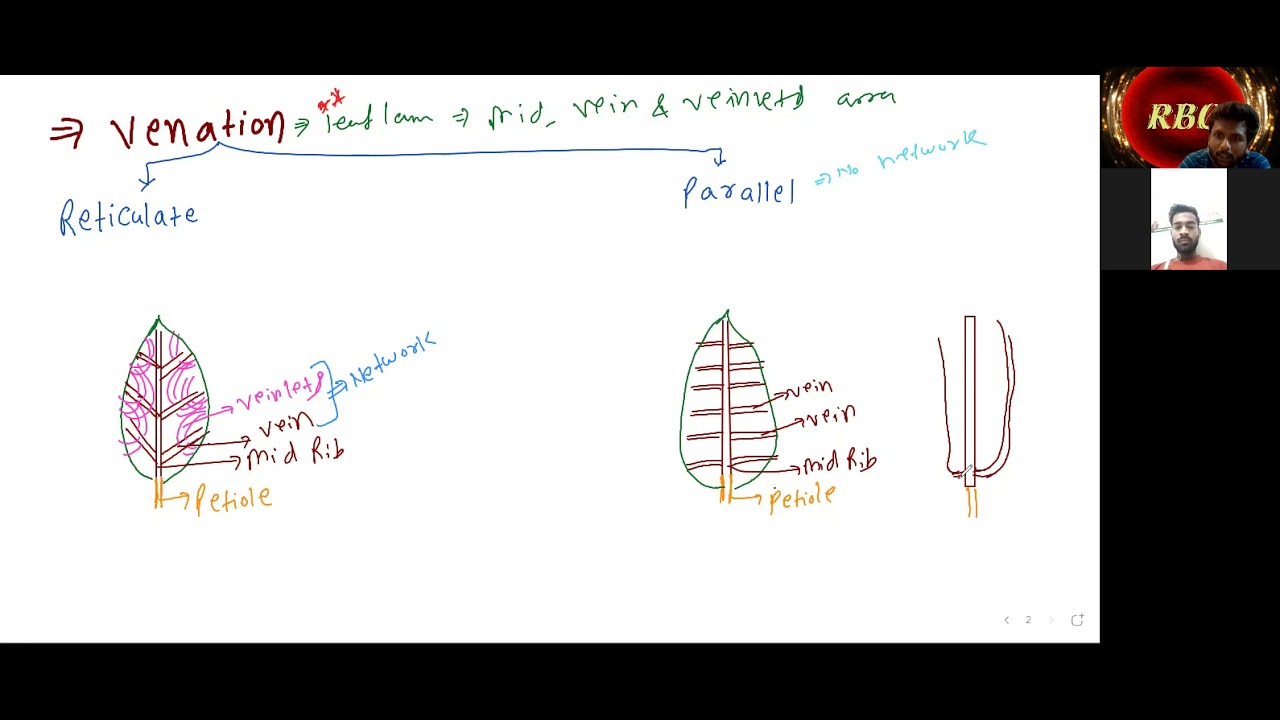 ⇒ Venation ⇒ ** leaf lam ⇒ Mid, vein & veinlets area
Reticulate
Parallel ⇒ No network
veinlets
vein
⇒ Network
Mid Rib
Petiole
vein
vein
Mid Rib
Petiole
RBC
2